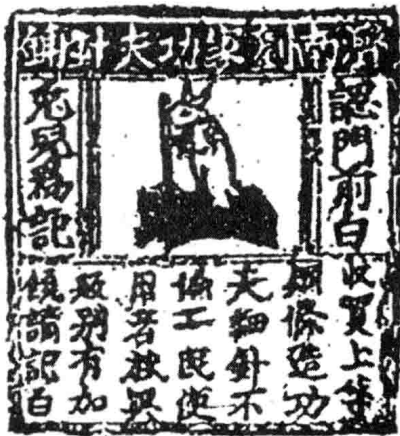 濟南劉家功夫針鋪
認門前白
兔兒爲記
收買上等
鋼條造功
夫細針不
偷工
用若被興
販別有加
饒請記白